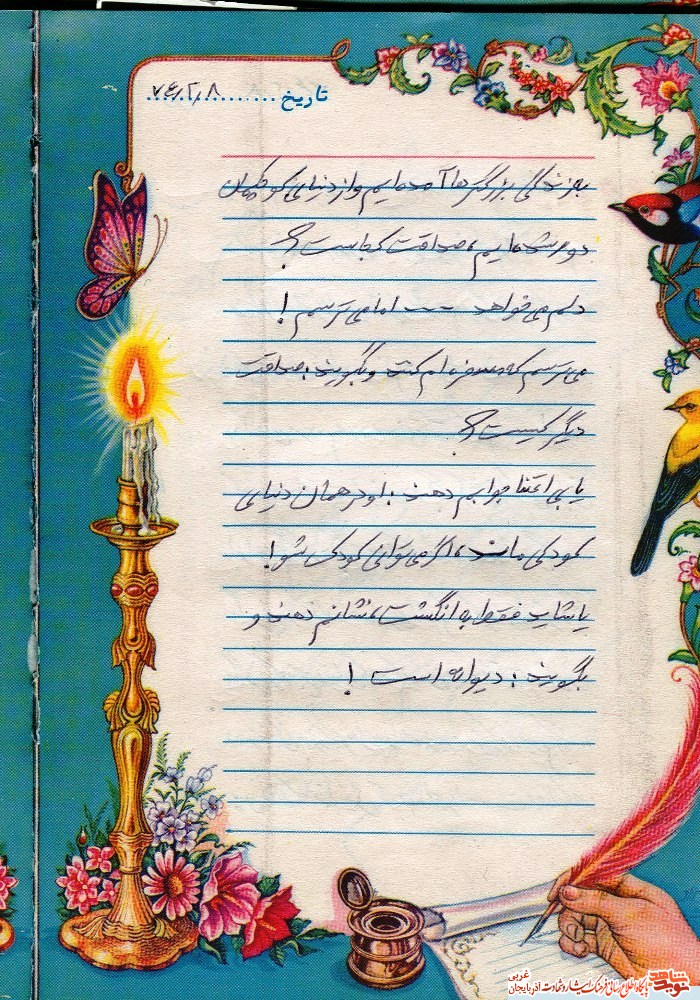 تاریخ ۷۴٫۲٫۸
به زندگی بزرگترها آمده‌ایم و از دنیای کوچکمان
دور شده‌ایم، صداقت کجاست؟
دلم می‌خواهد --- اما می‌ترسم!
می‌ترسم که مسخره‌ام کنند و بگویند: صداقت
دیگر کیست؟
یا بی اعتنا جوابم دهند: او در همان دنیای
کودکی ماند، اگر می‌توانی کودک شو!
یا شاید فقط به انگشت، نشانم دهند و
بگویند: دیوانه است!
نوید شاهد
پایگاه اطلاع رسانی فرهنگ ایثار و شهادت آذربایجان غربی